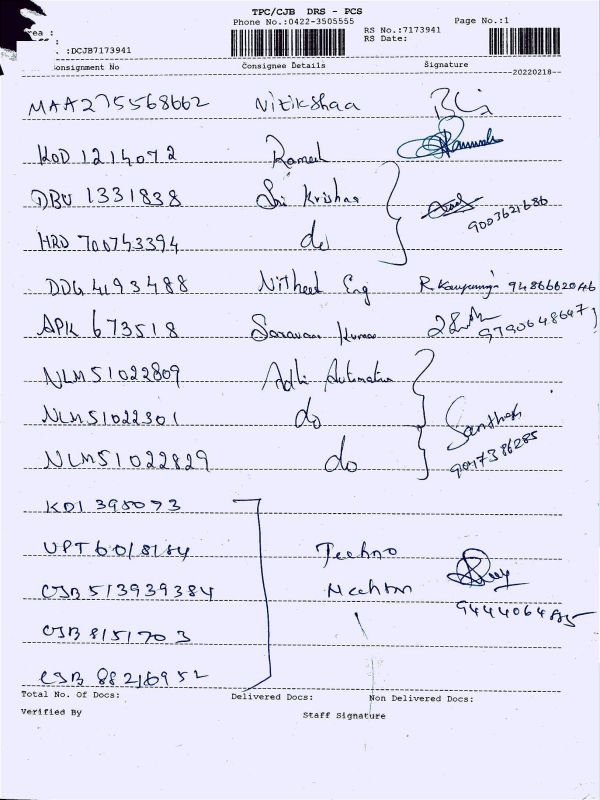 TPC/CJB DRS - PCS
Phone No.:0422-3505555 Page No.:1
rea : RS No.:7173941
RS Date:
. :DCJB7173941
onsignment No Consignee Details Signature
20220218
MAA275568662 Nitikshaa
KOD 1214072 Ramesh
DBU 1331838 Sri Krishna
9003621686
HRD 700743394 do
DDG 4193488 Nitheet Eng 9486662046
APK 673518 Saravana Kumar
9790648647
NLM51022809 Adhi Automation
NLM51022301 do
Santhosh
NLM51022829 do
9047386285
KDI 395073
UPT 6018184 Techno
CJB 513939384 Mechton
CJB 8151703
CJB 88216952
Total No. Of Docs: Delivered Docs: Non Delivered Docs:
Verified By Staff Signature